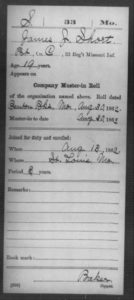 S 33 Mo.
James J. Short
Pvt., Co. C, 33 Reg't Missouri Inf.
Age 19 years.
Appears on
Company Muster-in Roll
of the organization named above. Roll dated
Benton Bks, Mo., Aug 22, 1862.
Muster-in to date Aug 22, 1862.
Joined for duty and enrolled:
When Aug 13, 1862
Where St. Louis Mo.
Period 3 years.
Remarks:
Book mark:
Baker
Copyist.